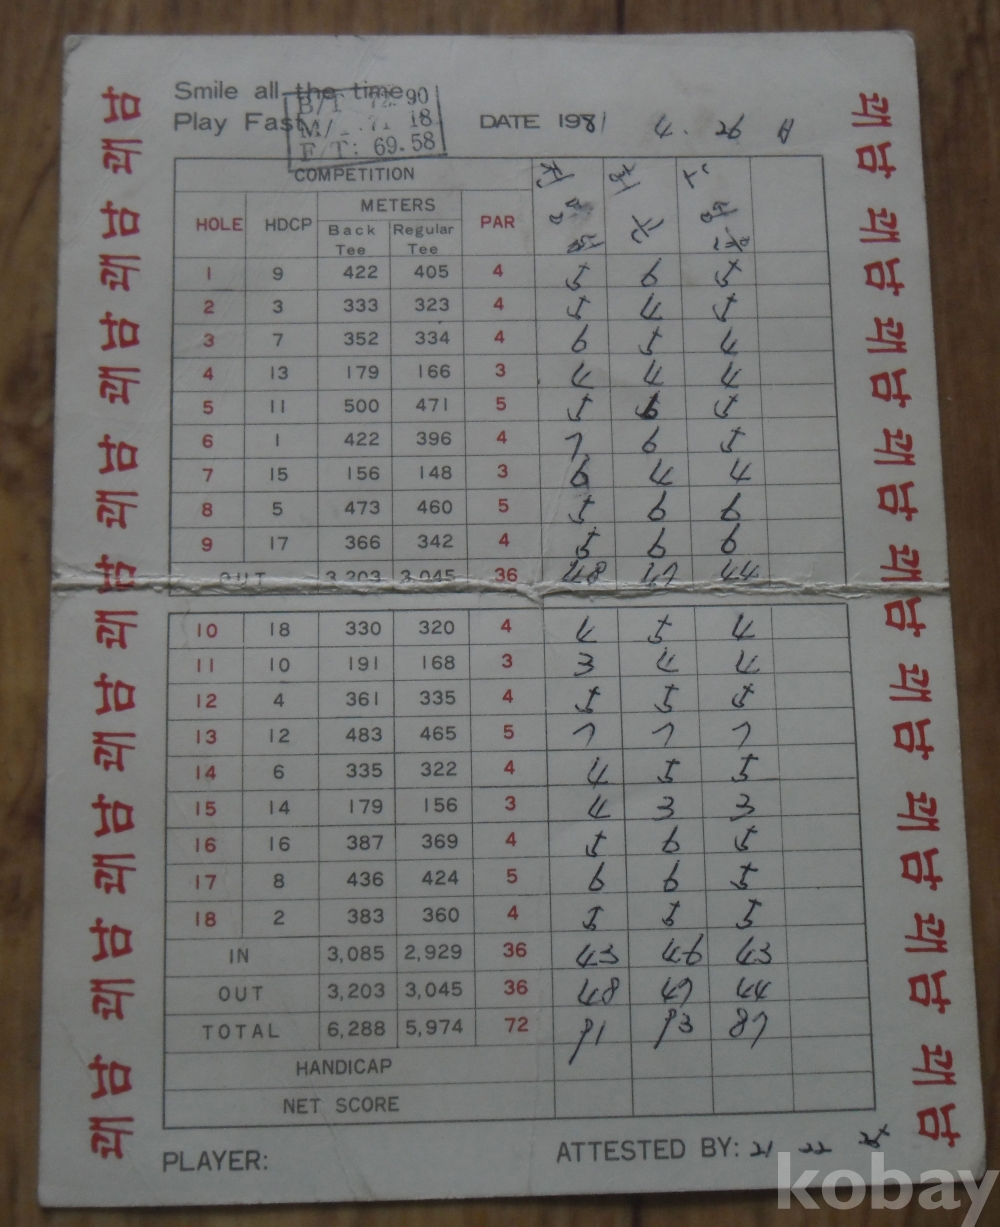 쾌남 쾌남 쾌남 쾌남 쾌남 쾌남 쾌남 쾌남 쾌남
Smile all the time
Play Fast
B/T 90
M/ 18
F/T: 69.58
DATE 1981 4. 26
COMPETITION
HOLE HDCP METERS PAR
Back Tee Regular Tee
1 9 422 405 4 5 6 5
2 3 333 323 4 5 4 5
3 7 352 334 4 6 5 4
4 13 179 166 3 4 4 4
5 11 500 471 5 5 6 5
6 1 422 396 4 7 6 5
7 15 156 148 3 6 4 4
8 5 473 460 5 5 6 6
9 17 366 342 4 5 6 6
OUT 3,203 3,045 36 48 47 44
10 18 330 320 4 4 5 4
11 10 191 168 3 3 4 4
12 4 361 335 4 5 5 5
13 12 483 465 5 7 7 7
14 6 335 322 4 4 5 5
15 14 179 156 3 4 3 3
16 16 387 369 4 5 6 5
17 8 436 424 5 6 6 5
18 2 383 360 4 5 5 5
IN 3,085 2,929 36 43 46 43
OUT 3,203 3,045 36 48 47 44
TOTAL 6,288 5,974 72 91 93 87
HANDICAP
NET SCORE
PLAYER: ATTESTED BY: 21 22
쾌남 쾌남 쾌남 쾌남 쾌남 쾌남 쾌남 쾌남 쾌남
kobay